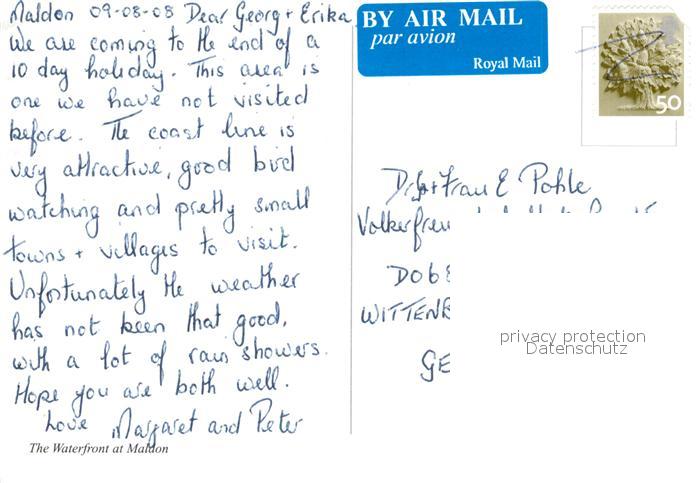 Maldon 09-08-08 Dear Georg + Erika,
We are coming to the end of a
10 day holiday. This area is
one we have not visited
before. The coast line is
very attractive, good bird
watching and pretty small
towns + villages to visit.
Unfortunately the weather
has not been that good,
with a lot of rain showers.
Hope you are both well.
Love Margaret and Peter
The Waterfront at Maldon
BY AIR MAIL
par avion
Royal Mail
50
+ Frau E Pohle
Volkerfreu
DO6
WITTENB
GE
privacy protection
Datenschutz